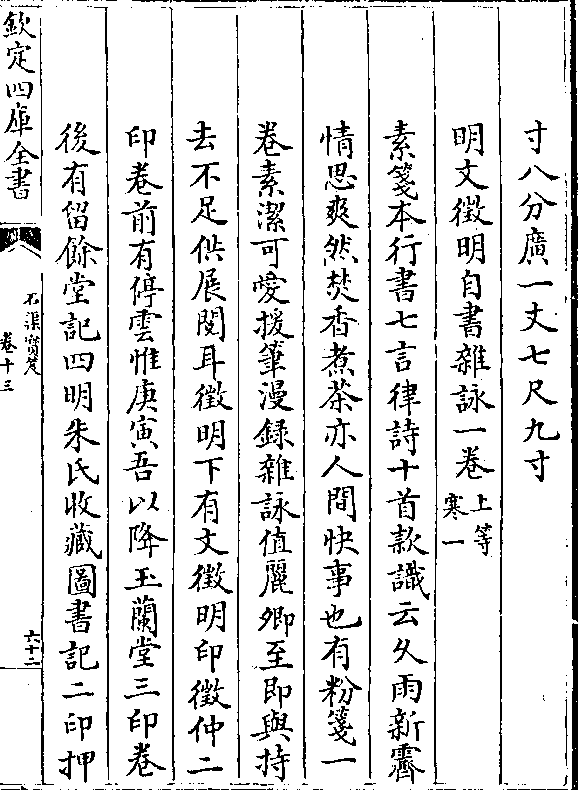 寸八分廣一丈七尺九寸
明文徵明自書雜詠一卷上等寒一
素箋本行書七言律詩十首款識云久雨新霽
情思爽然焚香煮茶亦人間快事也有粉箋一
卷素潔可愛援筆漫録雜詠值麗卿至即與持
去不足供展閱耳徵明下有文徵明印徵仲二
印卷前有停雲惟庚寅吾以降玉蘭堂三印卷
後有留餘堂記四明朱氏收藏圖書記二印押
欽定四庫全書
石渠寳笈
卷十三
六十二